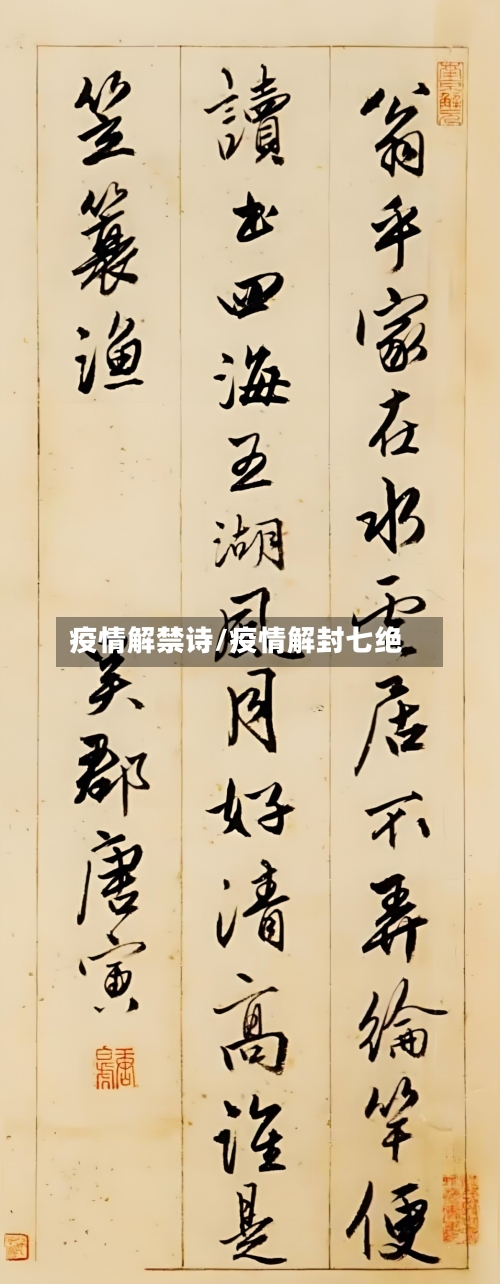 翁乎家在水雲居不弄綸竿便
讀书四海五湖風月好清高誰是
笠蓑漁
吴郡唐寅
疫情解禁诗/疫情解封七绝